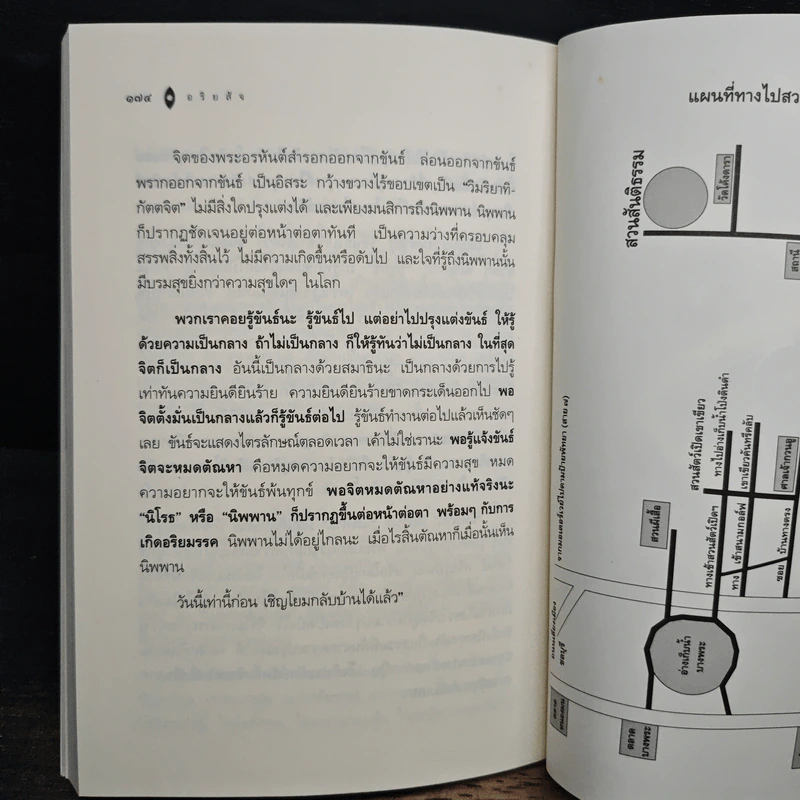 ๑๗๔ อริยสัจ
จิตของพระอรหันต์สำรอกออกจากขันธ์ ล่อนออกจากขันธ์
พรากออกจากขันธ์ เป็นอิสระ กว้างขวางไร้ขอบเขตเป็น “วิมริยาทิ-
กัตตจิต” ไม่มีสิ่งใดปรุงแต่งได้ และเพียงมนสิการถึงนิพพาน นิพพาน
ก็ปรากฏชัดเจนอยู่ต่อหน้าต่อตาทันที เป็นความว่างที่ครอบคลุม
สรรพสิ่งทั้งสิ้นไว้ ไม่มีความเกิดขึ้นหรือดับไป และใจที่รู้ถึงนิพพานนั้น
มีบรมสุขยิ่งกว่าความสุขใดๆ ในโลก
พวกเราคอยรู้ขันธ์นะ รู้ขันธ์ไป แต่อย่าไปปรุงแต่งขันธ์ ให้รู้
ด้วยความเป็นกลาง ถ้าไม่เป็นกลาง ก็ให้รู้ทันว่าไม่เป็นกลาง ในที่สุด
จิตก็เป็นกลาง อันนี้เป็นกลางด้วยสมาธินะ เป็นกลางด้วยการไปรู้
เท่าทันความยินดียินร้าย ความยินดียินร้ายขาดกระเด็นออกไป พอ
จิตตั้งมั่นเป็นกลางแล้วก็รู้ขันธ์ต่อไป รู้ขันธ์ทำงานต่อไปแล้วเห็นชัดๆ
เลย ขันธ์จะแสดงไตรลักษณ์ตลอดเวลา เค้าไม่ใช่เรานะ พอรู้แจ้งขันธ์
จิตจะหมดตัณหา คือหมดความอยากจะให้ขันธ์มีความสุข หมด
ความอยากจะให้ขันธ์พ้นทุกข์ พอจิตหมดตัณหาอย่างแท้จริงนะ
“นิโรธ” หรือ “นิพพาน” ก็ปรากฏขึ้นต่อหน้าต่อตา พร้อมๆ กับการ
เกิดอริยมรรค นิพพานไม่ได้อยู่ไกลนะ เมื่อไรสิ้นตัณหาก็เมื่อนั้นเห็น
นิพพาน
วันนี้เท่านี้ก่อน เชิญโยมกลับบ้านได้แล้ว”
แผนที่ทางไปสว
สวนสันติธรรม
วัดโค้งดารา
สถานี
จากมอเตอร์เวย์ไปตามป้ายพัทยา (สาย ๗)
สวนเสือ
สวนสัตว์เปิดเขาเขียว
ทางไปอ่างเก็บน้ำโป่งดินดำ
เขาเขียวคันทรีคลับ
ศาลเจ้ากวนอู
ทางเข้าสวนสัตว์เปิดฯ
ทาง เข้าสนามกอล์ฟ
ซอย บ้านทางตรง
ชลบุรี
อ่างเก็บน้ำ
บางพระ
ตลาด
หนองมน
ตลาด
บางพระ